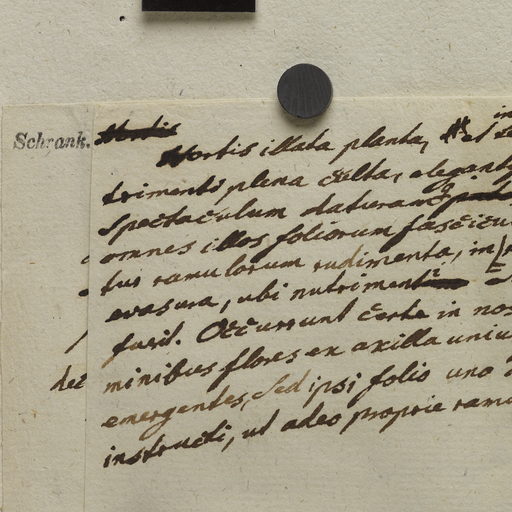 Schrank.
Hortis illata planta, et
trimentis plena culta, elegant
spectaculum daturam
omnes illos foliorum fascicu
tus ramulorum rudimenta, in
evasura, ubi nutriment
fuerit. Occurrunt certe in nos
minibus flores ex axilla uniu
emergentes, sed ipsi folio uno
instructi, ut adeo proprie ramu